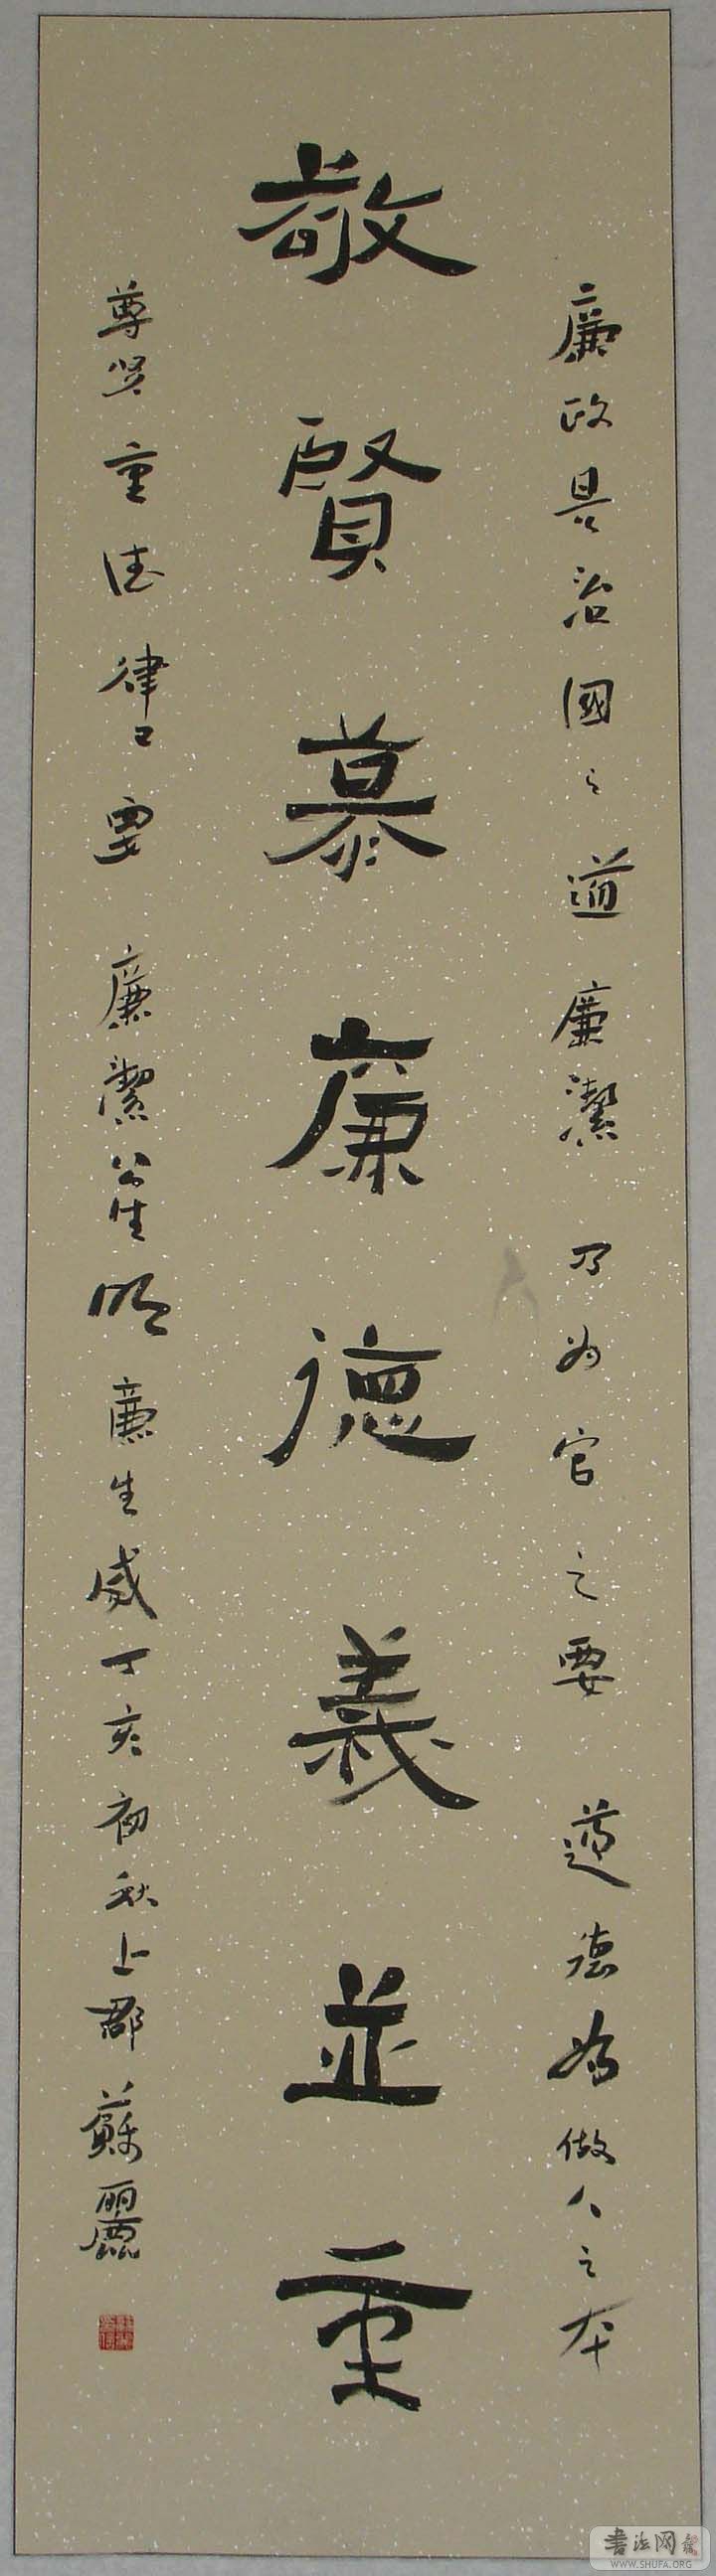 廉政是治國之道廉潔乃为官之要道德为做人之本
敬賢慕廉德義並重
尊贤重德律己要廉潔公生明廉生威丁亥初秋上郡蘇麗
书法网
WWW.SHUFA.ORG